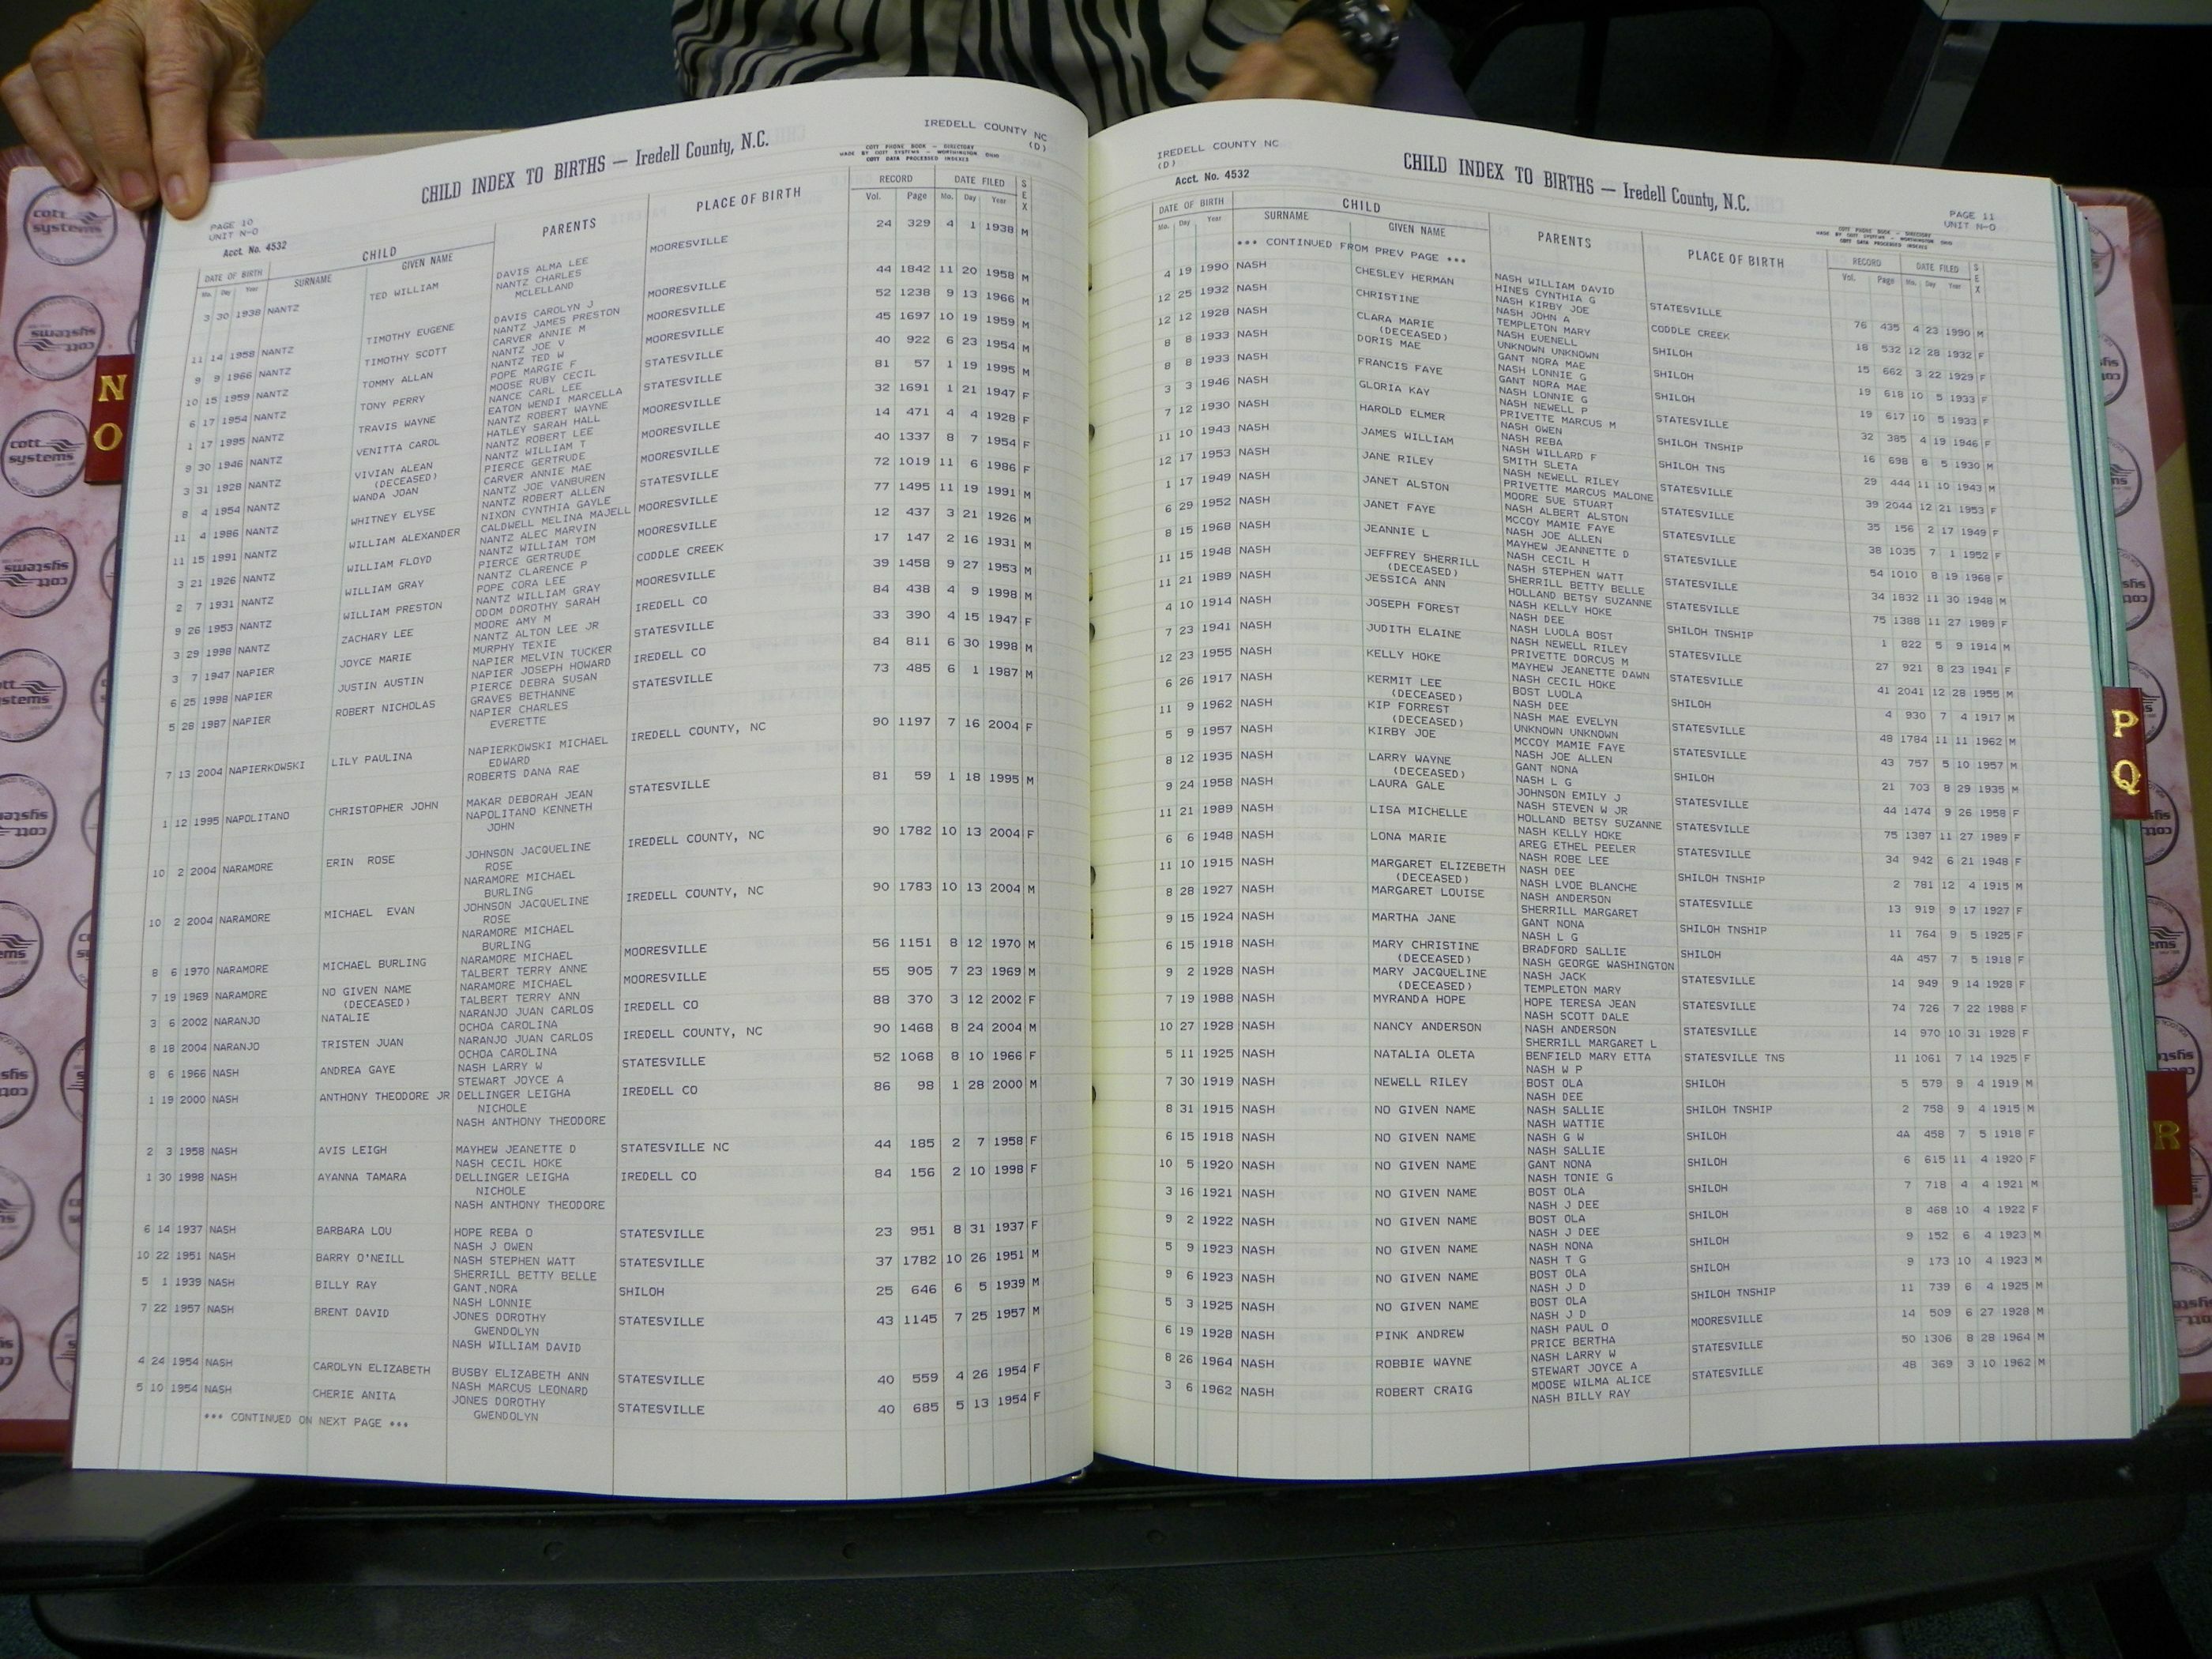 IREDELL COUNTY NC
(D)
CHILD INDEX TO BIRTHS — Iredell County, N.C.
COTT PHONE BOOK - DIRECTORY
MADE BY COTT SYSTEMS - WORTHINGTON OHIO
COTT DATA PROCESSED INDEXES
PAGE 10
UNIT N-O
Acct. No. 4532
DATE OF BIRTH CHILD PARENTS PLACE OF BIRTH RECORD DATE FILED SEX
Mo. Day Year SURNAME GIVEN NAME Vol. Page Mo. Day Year
3 30 1938 NANTZ TED WILLIAM DAVIS ALMA LEE MOORESVILLE 24 329 4 1 1938 M
NANTZ CHARLES
MCLELLAND
11 14 1958 NANTZ TIMOTHY EUGENE DAVIS CAROLYN J MOORESVILLE 44 1842 11 20 1958 M
NANTZ JAMES PRESTON
9 9 1966 NANTZ TIMOTHY SCOTT CARVER ANNIE M MOORESVILLE 52 1238 9 13 1966 M
NANTZ JOE V
10 15 1959 NANTZ TOMMY ALLAN NANTZ TED W MOORESVILLE 45 1697 10 19 1959 M
POPE MARGIE F
6 17 1954 NANTZ TONY PERRY MOOSE RUBY CECIL STATESVILLE 40 922 6 23 1954 M
NANCE CARL LEE
1 17 1995 NANTZ TRAVIS WAYNE EATON WENDI MARCELLA STATESVILLE 81 57 1 19 1995 M
NANTZ ROBERT WAYNE
9 30 1946 NANTZ VENITTA CAROL HATLEY SARAH HALL MOORESVILLE 32 1691 1 21 1947 F
NANTZ ROBERT LEE
3 31 1928 NANTZ VIVIAN ALEAN NANTZ WILLIAM T MOORESVILLE 14 471 4 4 1928 F
(DECEASED) PIERCE GERTRUDE
8 4 1954 NANTZ WANDA JOAN CARVER ANNIE MAE MOORESVILLE 40 1337 8 7 1954 F
NANTZ JOE VANBUREN
11 4 1986 NANTZ WHITNEY ELYSE NANTZ ROBERT ALLEN STATESVILLE 72 1019 11 6 1986 F
NIXON CYNTHIA GAYLE
11 15 1991 NANTZ WILLIAM ALEXANDER CALDWELL MELINA MAJELL MOORESVILLE 77 1495 11 19 1991 M
NANTZ ALEC MARVIN
3 21 1926 NANTZ WILLIAM FLOYD NANTZ WILLIAM TOM MOORESVILLE 12 437 3 21 1926 M
PIERCE GERTRUDE
2 7 1931 NANTZ WILLIAM GRAY NANTZ CLARENCE P CODDLE CREEK 17 147 2 16 1931 M
POPE CORA LEE
9 26 1953 NANTZ WILLIAM PRESTON NANTZ WILLIAM GRAY MOORESVILLE 39 1458 9 27 1953 M
ODOM DOROTHY SARAH
3 29 1998 NANTZ ZACHARY LEE MOORE AMY M IREDELL CO 84 438 4 9 1998 M
NANTZ ALTON LEE JR
3 7 1947 NAPIER JOYCE MARIE MURPHY TEXIE STATESVILLE 33 390 4 15 1947 F
NAPIER MELVIN TUCKER
6 25 1998 NAPIER JUSTIN AUSTIN NAPIER JOSEPH HOWARD IREDELL CO 84 811 6 30 1998 M
PIERCE DEBRA SUSAN
5 28 1987 NAPIER ROBERT NICHOLAS GRAVES BETHANNE STATESVILLE 73 485 6 1 1987 M
NAPIER CHARLES
EVERETTE
7 13 2004 NAPIERKOWSKI LILY PAULINA NAPIERKOWSKI MICHAEL IREDELL COUNTY, NC 90 1197 7 16 2004 F
EDWARD
ROBERTS DANA RAE
1 12 1995 NAPOLITANO CHRISTOPHER JOHN MAKAR DEBORAH JEAN STATESVILLE 81 59 1 18 1995 M
NAPOLITANO KENNETH
JOHN
10 2 2004 NARAMORE ERIN ROSE JOHNSON JACQUELINE IREDELL COUNTY, NC 90 1782 10 13 2004 F
ROSE
NARAMORE MICHAEL
BURLING
10 2 2004 NARAMORE MICHAEL EVAN JOHNSON JACQUELINE IREDELL COUNTY, NC 90 1783 10 13 2004 M
ROSE
NARAMORE MICHAEL
BURLING
8 6 1970 NARAMORE MICHAEL BURLING NARAMORE MICHAEL MOORESVILLE 56 1151 8 12 1970 M
TALBERT TERRY ANNE
7 19 1969 NARAMORE NO GIVEN NAME NARAMORE MICHAEL MOORESVILLE 55 905 7 23 1969 M
(DECEASED) TALBERT TERRY ANN
3 6 2002 NARANJO NATALIE NARANJO JUAN CARLOS IREDELL CO 88 370 3 12 2002 F
OCHOA CAROLINA
8 18 2004 NARANJO TRISTEN JUAN NARANJO JUAN CARLOS IREDELL COUNTY, NC 90 1468 8 24 2004 M
OCHOA CAROLINA
8 6 1966 NASH ANDREA GAYE NASH LARRY W STATESVILLE 52 1068 8 10 1966 F
STEWART JOYCE A
1 19 2000 NASH ANTHONY THEODORE JR DELLINGER LEIGHA IREDELL CO 86 98 1 28 2000 M
NICHOLE
NASH ANTHONY THEODORE
2 3 1958 NASH AVIS LEIGH MAYHEW JEANETTE D STATESVILLE NC 44 185 2 7 1958 F
NASH CECIL HOKE
1 30 1998 NASH AYANNA TAMARA DELLINGER LEIGHA IREDELL CO 84 156 2 10 1998 F
NICHOLE
NASH ANTHONY THEODORE
6 14 1937 NASH BARBARA LOU HOPE REBA O STATESVILLE 23 951 8 31 1937 F
NASH J OWEN
10 22 1951 NASH BARRY O'NEILL NASH STEPHEN WATT STATESVILLE 37 1782 10 26 1951 M
SHERRILL BETTY BELLE
5 1 1939 NASH BILLY RAY GANT.NORA SHILOH 25 646 6 5 1939 M
NASH LONNIE
7 22 1957 NASH BRENT DAVID JONES DOROTHY STATESVILLE 43 1145 7 25 1957 M
GWENDOLYN
NASH WILLIAM DAVID
4 24 1954 NASH CAROLYN ELIZABETH BUSBY ELIZABETH ANN STATESVILLE 40 559 4 26 1954 F
NASH MARCUS LEONARD
5 10 1954 NASH CHERIE ANITA JONES DOROTHY STATESVILLE 40 685 5 13 1954 F
GWENDOLYN
*** CONTINUED ON NEXT PAGE ***
IREDELL COUNTY NC
(D)
Acct. No. 4532
CHILD INDEX TO BIRTHS — Iredell County, N.C.
PAGE 11
UNIT N-O
COTT PHONE BOOK - DIRECTORY
MADE BY COTT SYSTEMS - WORTHINGTON OHIO
COTT DATA PROCESSED INDEXES
DATE OF BIRTH CHILD PARENTS PLACE OF BIRTH RECORD DATE FILED SEX
Mo. Day Year SURNAME GIVEN NAME Vol. Page Mo. Day Year
*** CONTINUED FROM PREV PAGE ***
NASH WILLIAM DAVID
4 19 1990 NASH CHESLEY HERMAN HINES CYNTHIA G STATESVILLE 76 435 4 23 1990 M
NASH KIRBY JOE
12 25 1932 NASH CHRISTINE NASH JOHN A CODDLE CREEK 18 532 12 28 1932 F
TEMPLETON MARY
12 12 1928 NASH CLARA MARIE NASH EUENELL SHILOH 15 662 3 22 1929 F
(DECEASED) UNKNOWN UNKNOWN
8 8 1933 NASH DORIS MAE GANT NORA MAE SHILOH 19 618 10 5 1933 F
NASH LONNIE G
8 8 1933 NASH FRANCIS FAYE GANT NORA MAE SHILOH 19 617 10 5 1933 F
NASH LONNIE G
3 3 1946 NASH GLORIA KAY NASH NEWELL P STATESVILLE 32 385 4 19 1946 F
PRIVETTE MARCUS M
7 12 1930 NASH HAROLD ELMER NASH OWEN SHILOH TNSHIP 16 698 8 5 1930 M
NASH REBA
11 10 1943 NASH JAMES WILLIAM NASH WILLARD F SHILOH TNS 29 444 11 10 1943 M
SMITH SLETA
12 17 1953 NASH JANE RILEY NASH NEWELL RILEY STATESVILLE 39 2044 12 21 1953 F
PRIVETTE MARCUS MALONE
1 17 1949 NASH JANET ALSTON MOORE SUE STUART STATESVILLE 35 156 2 17 1949 F
NASH ALBERT ALSTON
6 29 1952 NASH JANET FAYE MCCOY MAMIE FAYE STATESVILLE 38 1035 7 1 1952 F
NASH JOE ALLEN
8 15 1968 NASH JEANNIE L MAYHEW JEANNETTE D STATESVILLE 54 1010 8 19 1968 F
NASH CECIL H
11 15 1948 NASH JEFFREY SHERRILL NASH STEPHEN WATT STATESVILLE 34 1832 11 30 1948 M
(DECEASED) SHERRILL BETTY BELLE
11 21 1989 NASH JESSICA ANN HOLLAND BETSY SUZANNE STATESVILLE 75 1388 11 27 1989 F
NASH KELLY HOKE
4 10 1914 NASH JOSEPH FOREST NASH DEE SHILOH TNSHIP 1 822 5 9 1914 M
NASH LUOLA BOST
7 23 1941 NASH JUDITH ELAINE NASH NEWELL RILEY STATESVILLE 27 921 8 23 1941 F
PRIVETTE DORCUS M
12 23 1955 NASH KELLY HOKE MAYHEW JEANETTE DAWN STATESVILLE 41 2041 12 28 1955 M
NASH CECIL HOKE
6 26 1917 NASH KERMIT LEE BOST LUOLA SHILOH 4 930 7 4 1917 M
(DECEASED) NASH DEE
11 9 1962 NASH KIP FORREST NASH MAE EVELYN STATESVILLE 48 1784 11 11 1962 M
(DECEASED) UNKNOWN UNKNOWN
5 9 1957 NASH KIRBY JOE MCCOY MAMIE FAYE STATESVILLE 43 757 5 10 1957 M
NASH JOE ALLEN
8 12 1935 NASH LARRY WAYNE GANT NONA SHILOH 21 703 8 29 1935 M
(DECEASED) NASH L G
9 24 1958 NASH LAURA GALE JOHNSON EMILY J STATESVILLE 44 1474 9 26 1958 F
NASH STEVEN W JR
11 21 1989 NASH LISA MICHELLE HOLLAND BETSY SUZANNE STATESVILLE 75 1387 11 27 1989 F
NASH KELLY HOKE
6 6 1948 NASH LONA MARIE AREG ETHEL PEELER STATESVILLE 34 942 6 21 1948 F
NASH ROBE LEE
11 10 1915 NASH MARGARET ELIZEBETH NASH DEE SHILOH TNSHIP 2 781 12 4 1915 M
(DECEASED) NASH LVOE BLANCHE
8 28 1927 NASH MARGARET LOUISE NASH ANDERSON STATESVILLE 13 919 9 17 1927 F
SHERRILL MARGARET
9 15 1924 NASH MARTHA JANE GANT NONA SHILOH TNSHIP 11 764 9 5 1925 F
NASH L G
6 15 1918 NASH MARY CHRISTINE BRADFORD SALLIE SHILOH 4A 457 7 5 1918 F
(DECEASED) NASH GEORGE WASHINGTON
9 2 1928 NASH MARY JACQUELINE NASH JACK STATESVILLE 14 949 9 14 1928 F
(DECEASED) TEMPLETON MARY
7 19 1988 NASH MYRANDA HOPE HOPE TERESA JEAN STATESVILLE 74 726 7 22 1988 F
NASH SCOTT DALE
10 27 1928 NASH NANCY ANDERSON NASH ANDERSON STATESVILLE 14 970 10 31 1928 F
SHERRILL MARGARET L
5 11 1925 NASH NATALIA OLETA BENFIELD MARY ETTA STATESVILLE TNS 11 1061 7 14 1925 F
NASH W P
7 30 1919 NASH NEWELL RILEY BOST OLA SHILOH 5 579 9 4 1919 M
NASH DEE
8 31 1915 NASH NO GIVEN NAME NASH SALLIE SHILOH TNSHIP 2 758 9 4 1915 M
NASH WATTIE
6 15 1918 NASH NO GIVEN NAME NASH G W SHILOH 4A 458 7 5 1918 F
NASH SALLIE
10 5 1920 NASH NO GIVEN NAME GANT NONA SHILOH 6 615 11 4 1920 F
NASH TONIE G
3 16 1921 NASH NO GIVEN NAME BOST OLA SHILOH 7 718 4 4 1921 M
NASH J DEE
9 2 1922 NASH NO GIVEN NAME BOST OLA SHILOH 8 468 10 4 1922 F
NASH J DEE
5 9 1923 NASH NO GIVEN NAME NASH NONA SHILOH 9 152 6 4 1923 M
NASH T G
9 6 1923 NASH NO GIVEN NAME BOST OLA SHILOH 9 173 10 4 1923 M
NASH J D
5 3 1925 NASH NO GIVEN NAME BOST OLA SHILOH TNSHIP 11 739 6 4 1925 M
NASH J D
6 19 1928 NASH PINK ANDREW NASH PAUL O MOORESVILLE 14 509 6 27 1928 M
PRICE BERTHA
8 26 1964 NASH ROBBIE WAYNE NASH LARRY W STATESVILLE 50 1306 8 28 1964 M
STEWART JOYCE A
3 6 1962 NASH ROBERT CRAIG MOOSE WILMA ALICE STATESVILLE 48 369 3 10 1962 M
NASH BILLY RAY
N
O
P
Q
R
cott
systems
cott
systems